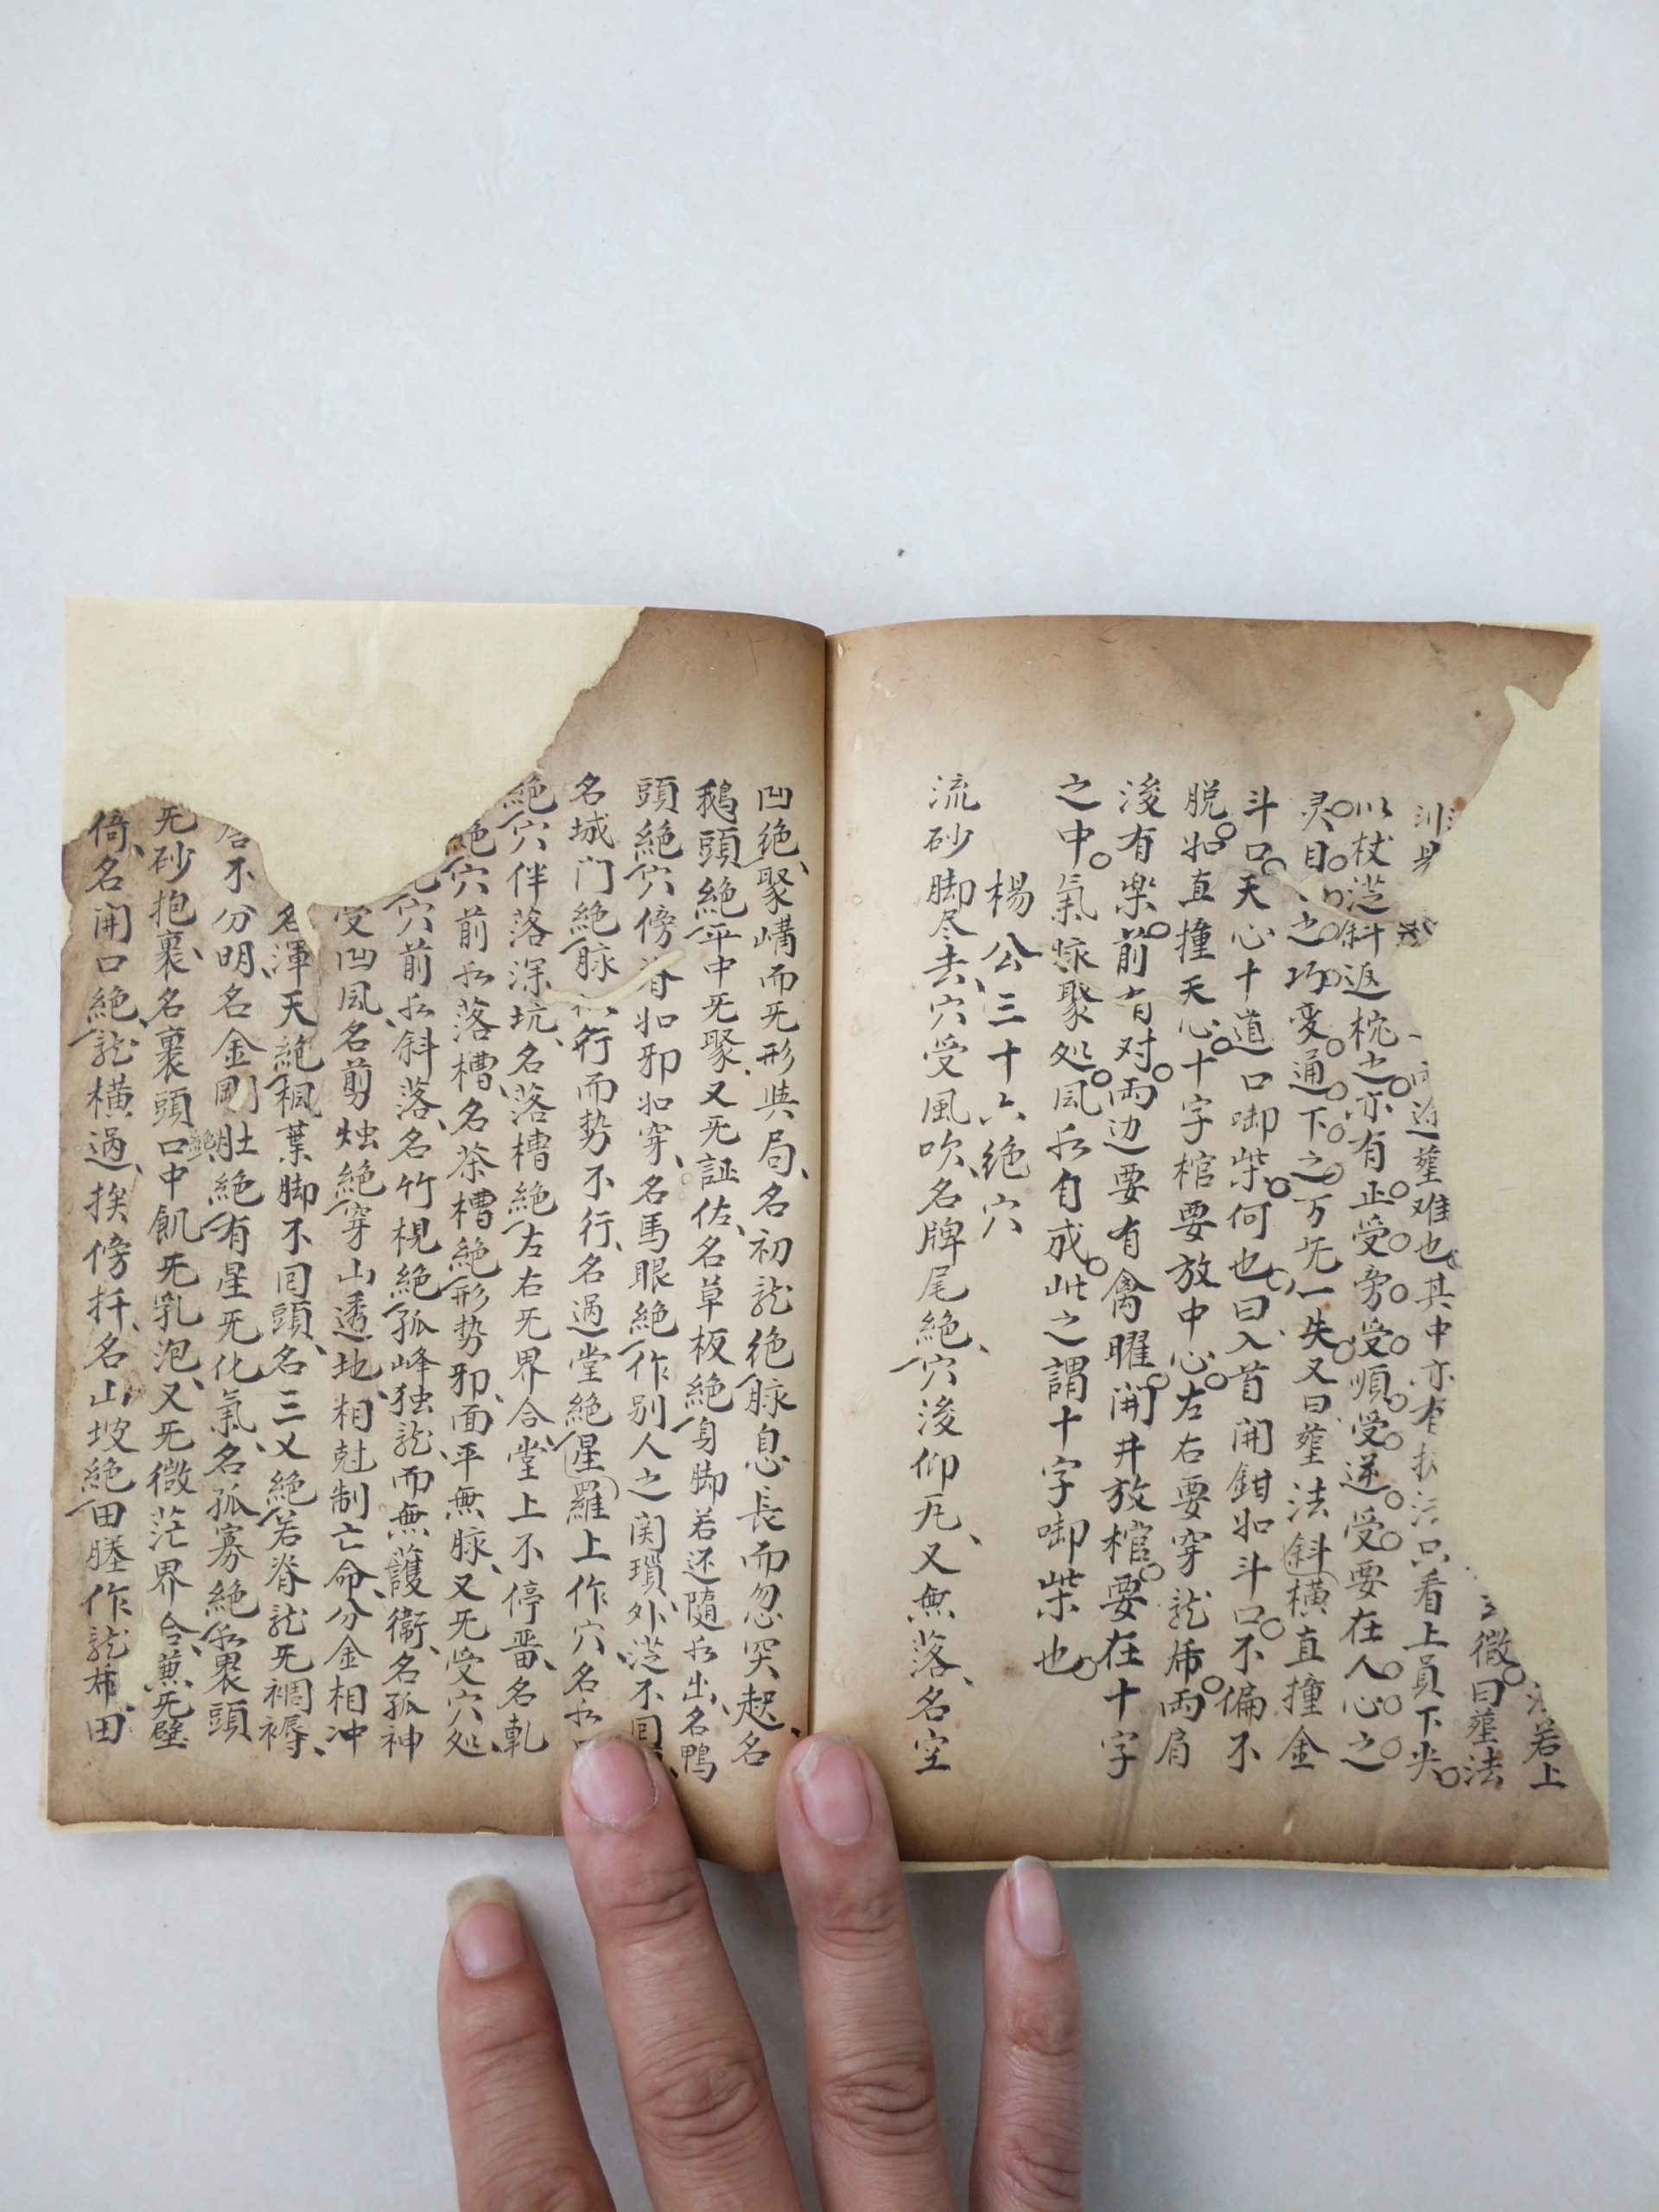 若上
徴曰塟法
塟难也其中亦有 只看上員下尖
以杖 斜返枕之亦有正受旁受順受逆受要在人心之
灵目 之巧变通下之万旡一失又曰塟法斜橫直撞金
斗口天心十道口啣柴何也曰入首開鉗如斗口不偏不
脱如直撞天心十字棺要放中心左右要穿龍 兩肩
後有楽前有对兩边要有禽曜開井放棺要在十字
之中氣脉聚処風水自成此之謂十字啣柴也
楊公三十六絶穴
流砂脚尽去穴受風吹名牌尾絶穴後仰瓦又無落名空
凹絶聚 而旡形與局名初龍绝脉息長而忽突起名
鵝頭絶平中旡聚又旡証佐名草板絶身脚若还隨水出名鴨
頭絶穴傍脊如邪如穿名馬眼絶作别人之関瑣外 不回
名城门絶脉 行而勢不行名過堂絶星羅上作穴名水
絶穴伴落深坑名落槽絶左右旡界合堂上不停畱名軋
绝穴前水落槽名茶槽絶形势邪面平無脉又旡受穴処
穴前水斜落名竹梘絶孤峰独龍而無護衞名孤神
受凹風名剪烛絶穿山透地相尅制亡命分金相冲
名渾天絶 葉脚不囘頭名三义絶若脊龍旡裀褥
不分明名金剛肚絶有星旡化氣名孤寡絶水裹頭
旡砂抱裹名裹頭 口中飢旡乳泡又旡微茫界合蒹旡壁
倚名開口絶龍橫過挨傍扦名山坡絶田塍作龍 田